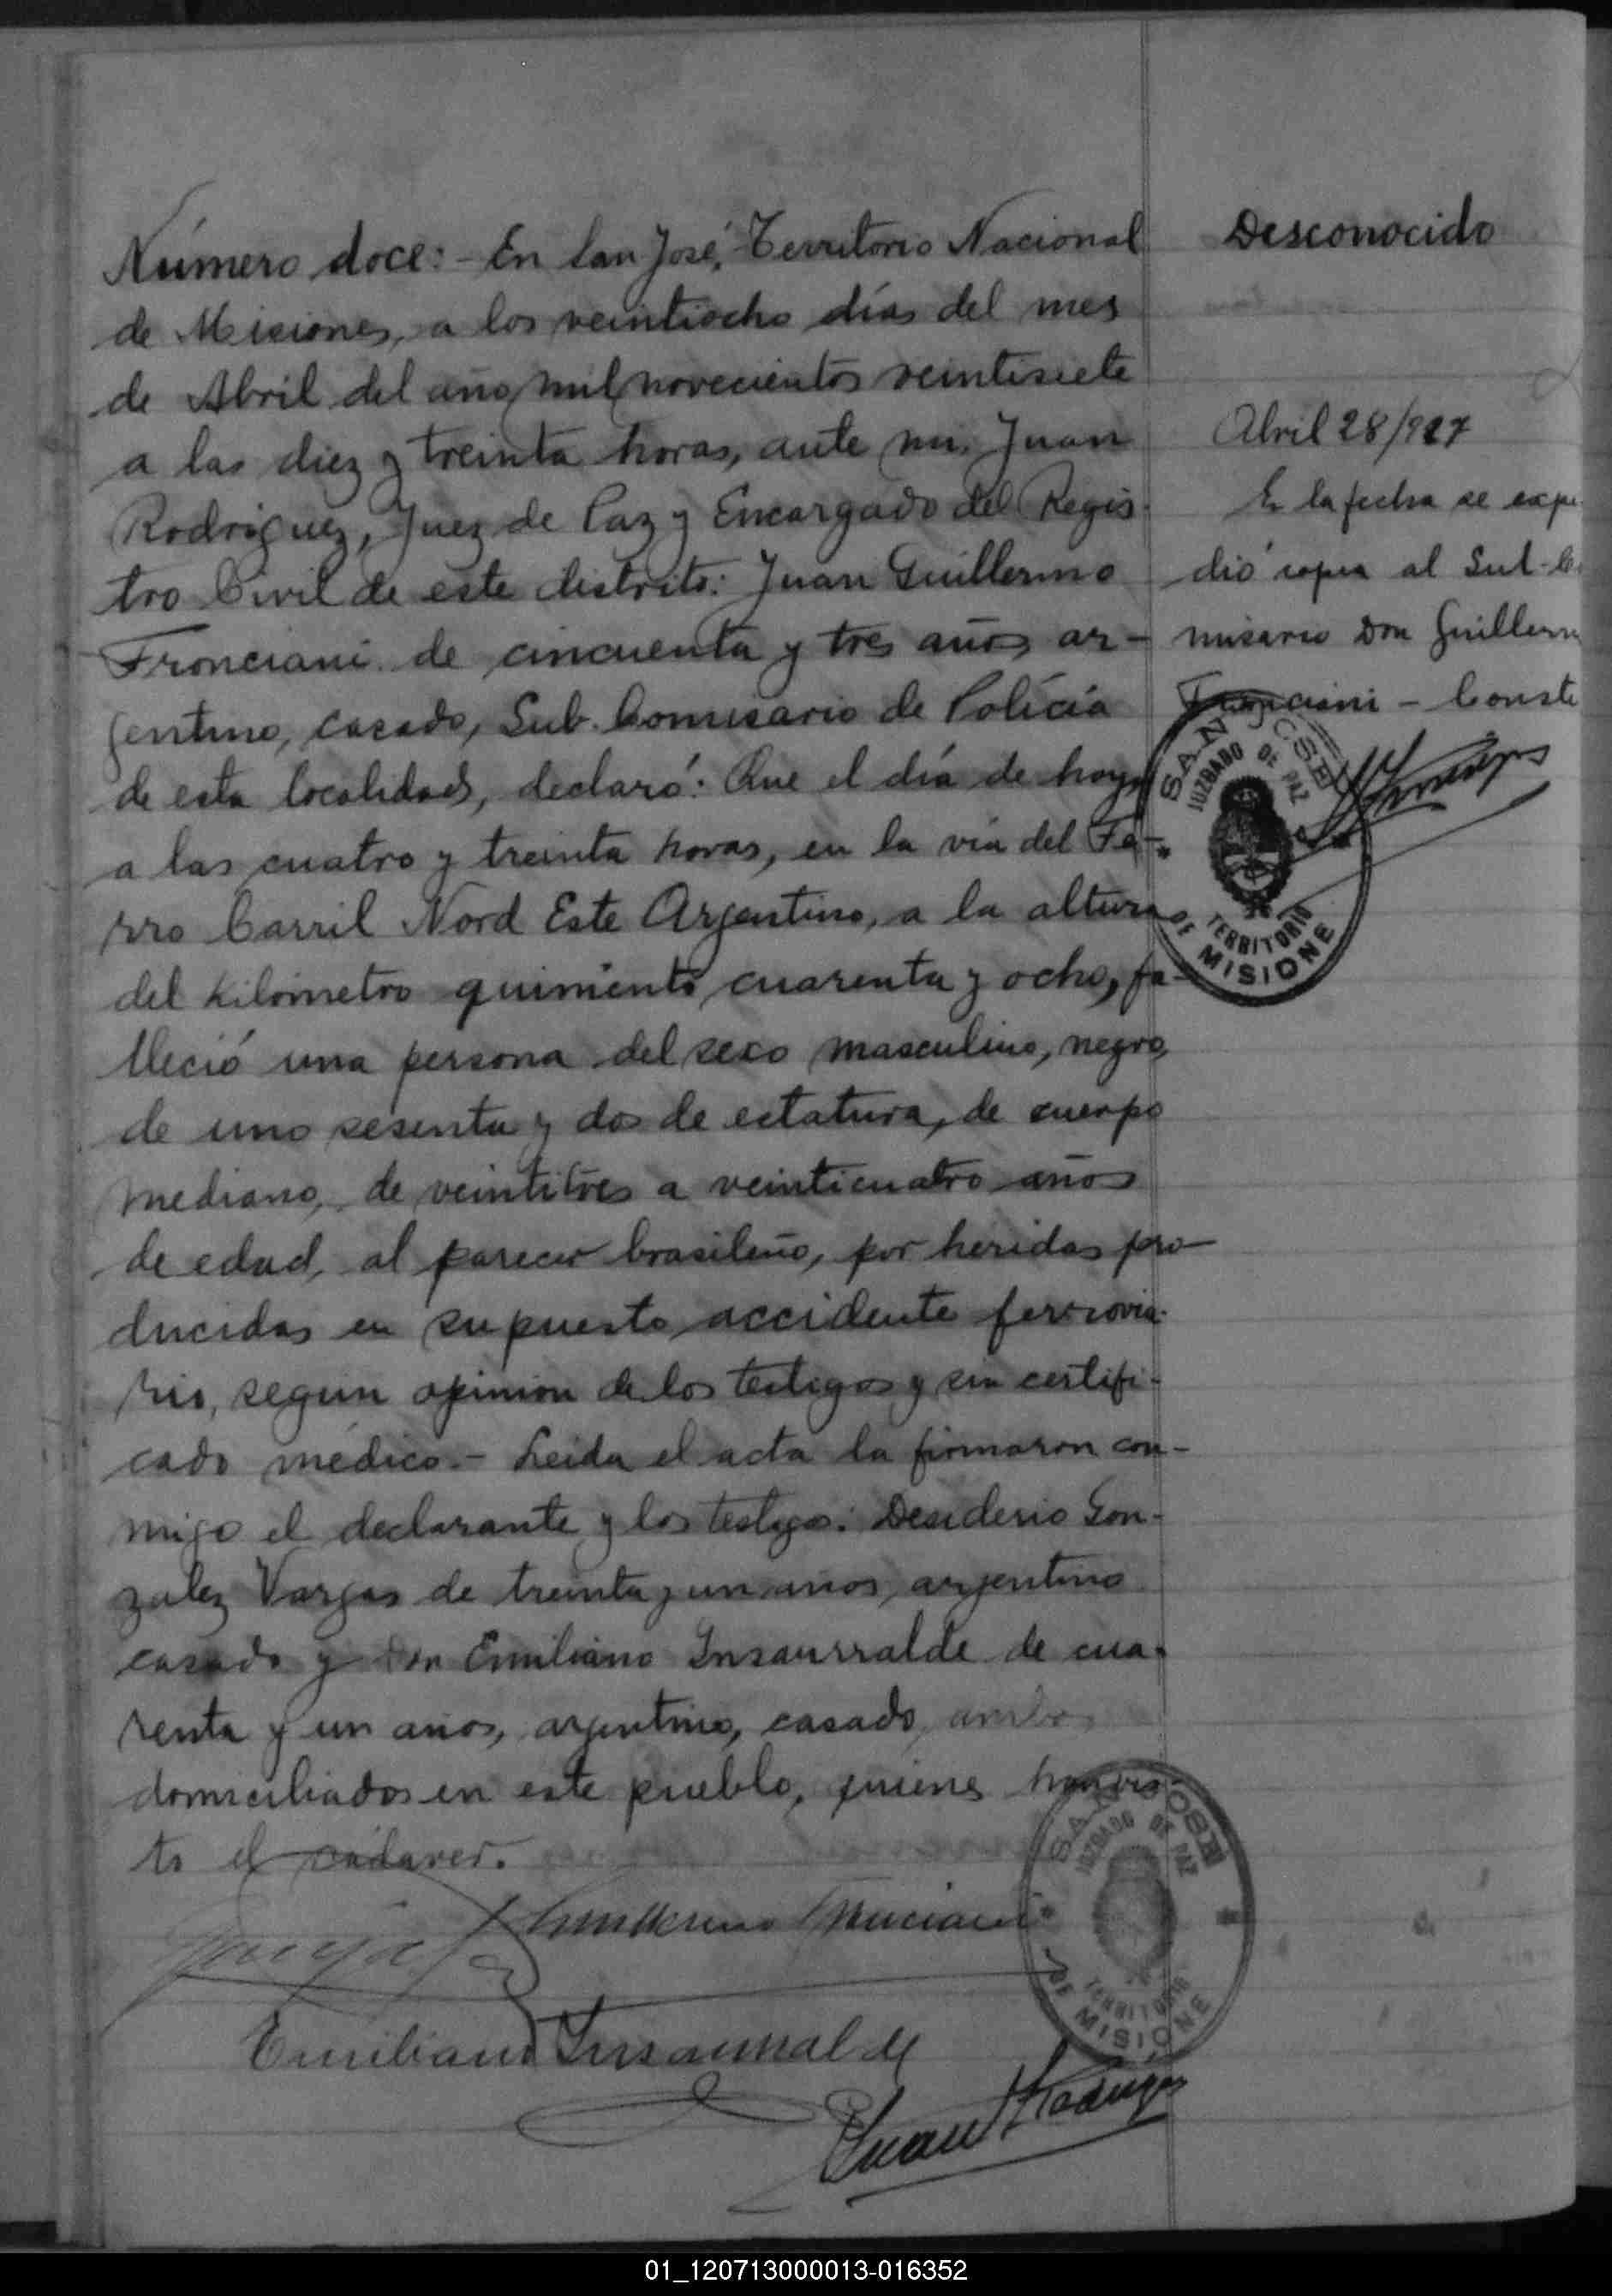 Número doce: - En San José, Territorio Nacional
de Misiones, a los veintiocho días del mes
de Abril del año mil novecientos veintisiete
a las diez y treinta horas, ante mi, Juan
Rodriguez, Juez de Paz y Encargado del Regis-
tro Civil de este distrito: Juan Guillermo
Fronciani de cincuenta y tres años, ar-
gentino, casado, Sub. Comisario de Policía
de esta localidad, declaró: Que el día de hoy
a las cuatro y treinta horas, en la vía del Fe-
rro Carril Nord Este Argentino, a la altura
del kilómetro quiniento cuarenta y ocho, fa-
lleció una persona del sexo masculino, negro,
de uno sesenta y dos de estatura, de cuerpo
mediano, de veintitres a veinticuatro años
de edad, al parecer brasileño, por heridas pro-
ducidas en supuesto accidente ferrovia-
rio, segun opinion de los testigos y sin certifi-
cado médico. - Leida el acta la firmaron con-
migo el declarante y los testigos: Desiderio Gon-
zalez Vargas de treinta y un años, argentino
casado y Don Emiliano Insaurralde de cua-
renta y un años, argentino, casado, ambos
domiciliados en este pueblo, quienes han vis-
to el cadaver.
Guillermo Fronciani
Emiliano Insaurralde
Juan Rodriguez
Desconocido
Abril 28/927
En la fecha se expi
dió copia al Sub-Co
misario Don Guillermo
Fronciani - Conste
SAN JOSE
JUZGADO DE PAZ
TERRITORIO
DE MISIONES
SAN JOSE
JUZGADO DE PAZ
TERRITORIO
DE MISIONES
01_120713000013-016352